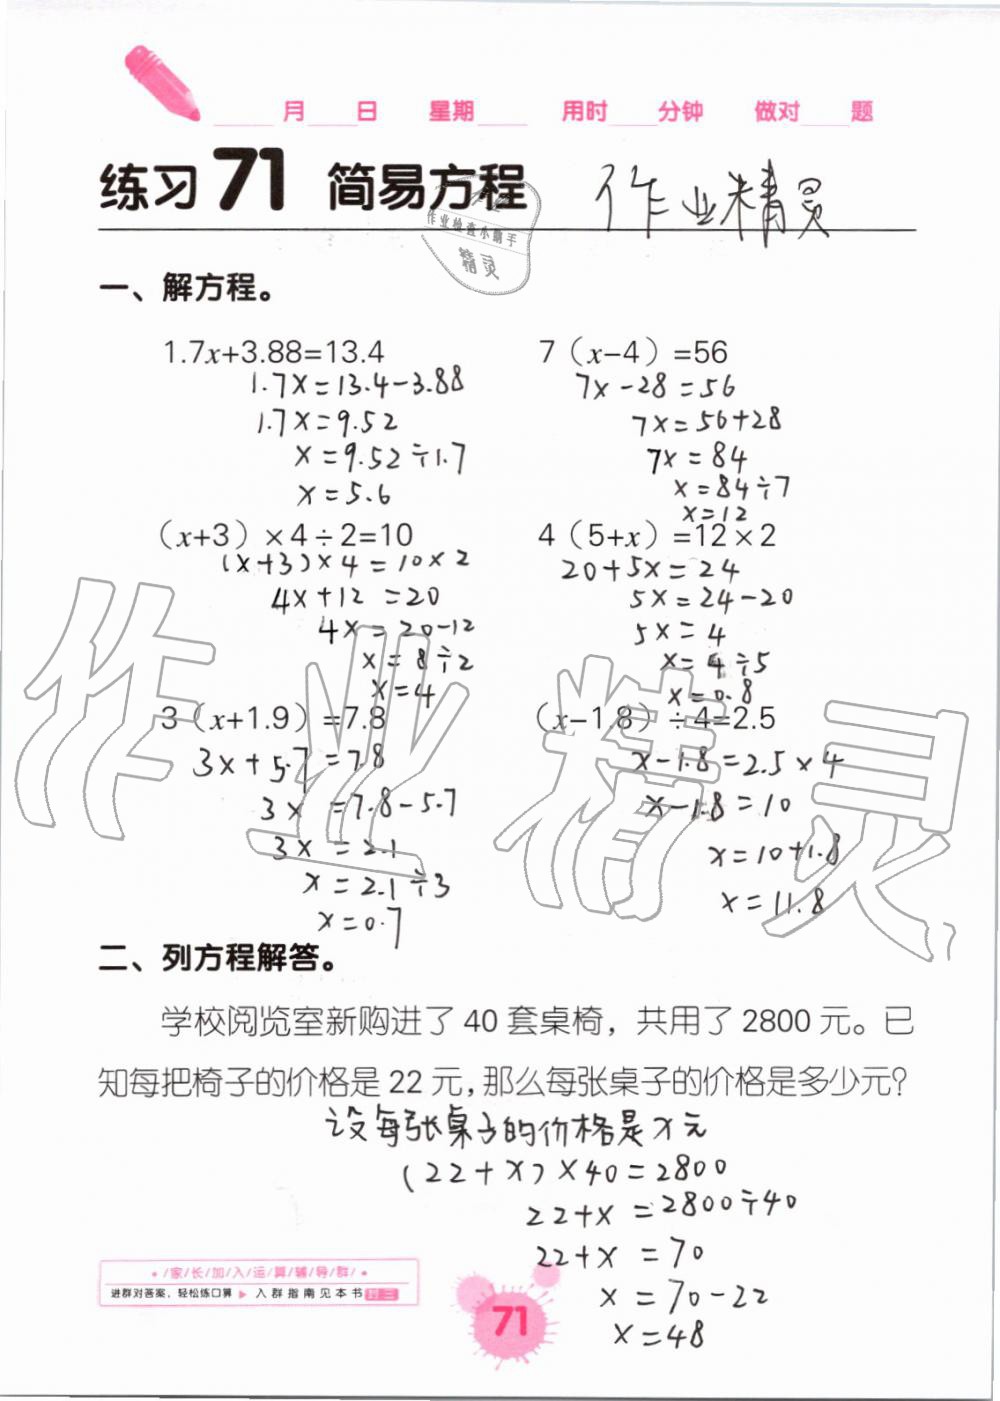 ____月____日 星期____ 用时____分钟 做对____题
练习71 简易方程 作业精灵
作业检查小助手
精灵
一、解方程。
1.7x+3.88=13.4
1.7x=13.4-3.88
1.7x=9.52
x=9.52÷1.7
x=5.6
7（x-4）=56
7x-28=56
7x=56+28
7x=84
x=84÷7
x=12
（x+3）×4÷2=10
(x+3)×4=10×2
4x+12=20
4x=20-12
x=8÷2
x=4
4（5+x）=12×2
20+5x=24
5x=24-20
5x=4
x=4÷5
x=0.8
3（x+1.9）=7.8
3x+5.7=7.8
3x=7.8-5.7
3x=2.1
x=2.1÷3
x=0.7
（x-1.8）÷4=2.5
x-1.8=2.5×4
x-1.8=10
x=10+1.8
x=11.8
作业精灵
二、列方程解答。
学校阅览室新购进了40套桌椅，共用了2800元。已
知每把椅子的价格是22元，那么每张桌子的价格是多少元？
设每张桌子的价格是x元
(22+x)×40=2800
22+x=2800÷40
22+x=70
x=70-22
x=48
/家/长/加/入/运/算/辅/导/群/
进群对答案，轻松练口算 ▶ 入群指南见本书封三
71